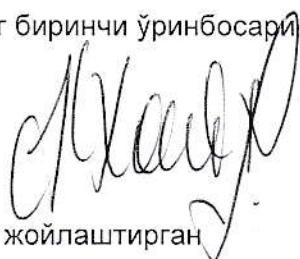 г биринчи ўринбосари
жойлаштирган